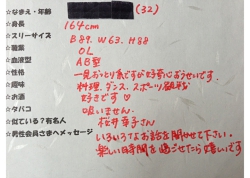 ☆なまえ・年齢 (32)
☆身長 164cm
☆スリーサイズ B89. W63. H88
☆職業 OL
☆血液型 AB型
☆性格 一見おとり系ですが好奇心おうせいです。
☆趣味 料理、ダンス、スポーツ観戦
☆お酒 好きです♡
☆タバコ 吸いません
☆似ている？有名人 桜井幸子さん
☆男性会員さまへメッセージ
いろいろなお話を聞かせて下さい。
楽しい時間を過ごせたら嬉しいです